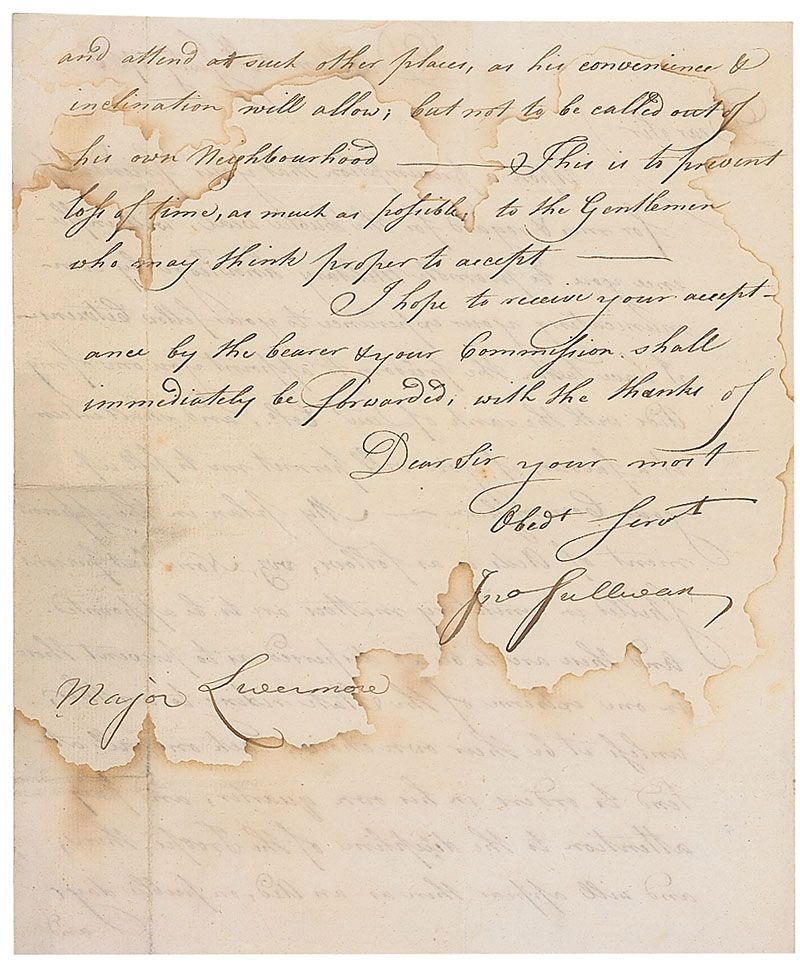 and attend at such other places, as his convenience &
inclination will allow; but not to be called out of
his own Neighbourhood ——— This is to prevent
loss of time, as much as possible, to the Gentlemen
who may think proper to accept ———
I hope to receive your accept-
ance by the bearer & your Commission shall
immediately be forwarded; with the thanks of
Dear Sir your most
Obedt Servt
Jno Sullivan
Major Livermore